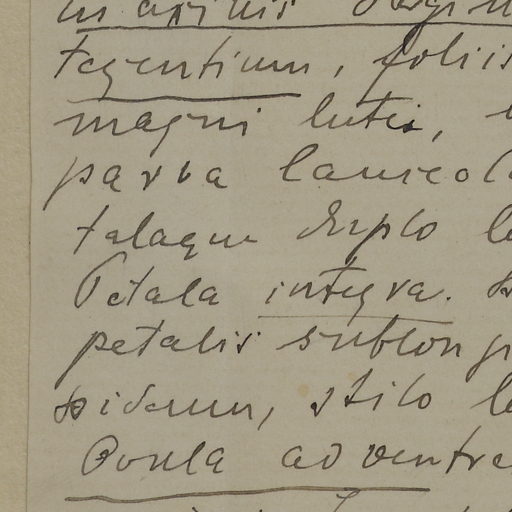 tegentium, foliis
magni lutei,
parva lanceol
talaque duplo l
Petala integra.
petalis sublong
stilo l
Ovula ad ventre